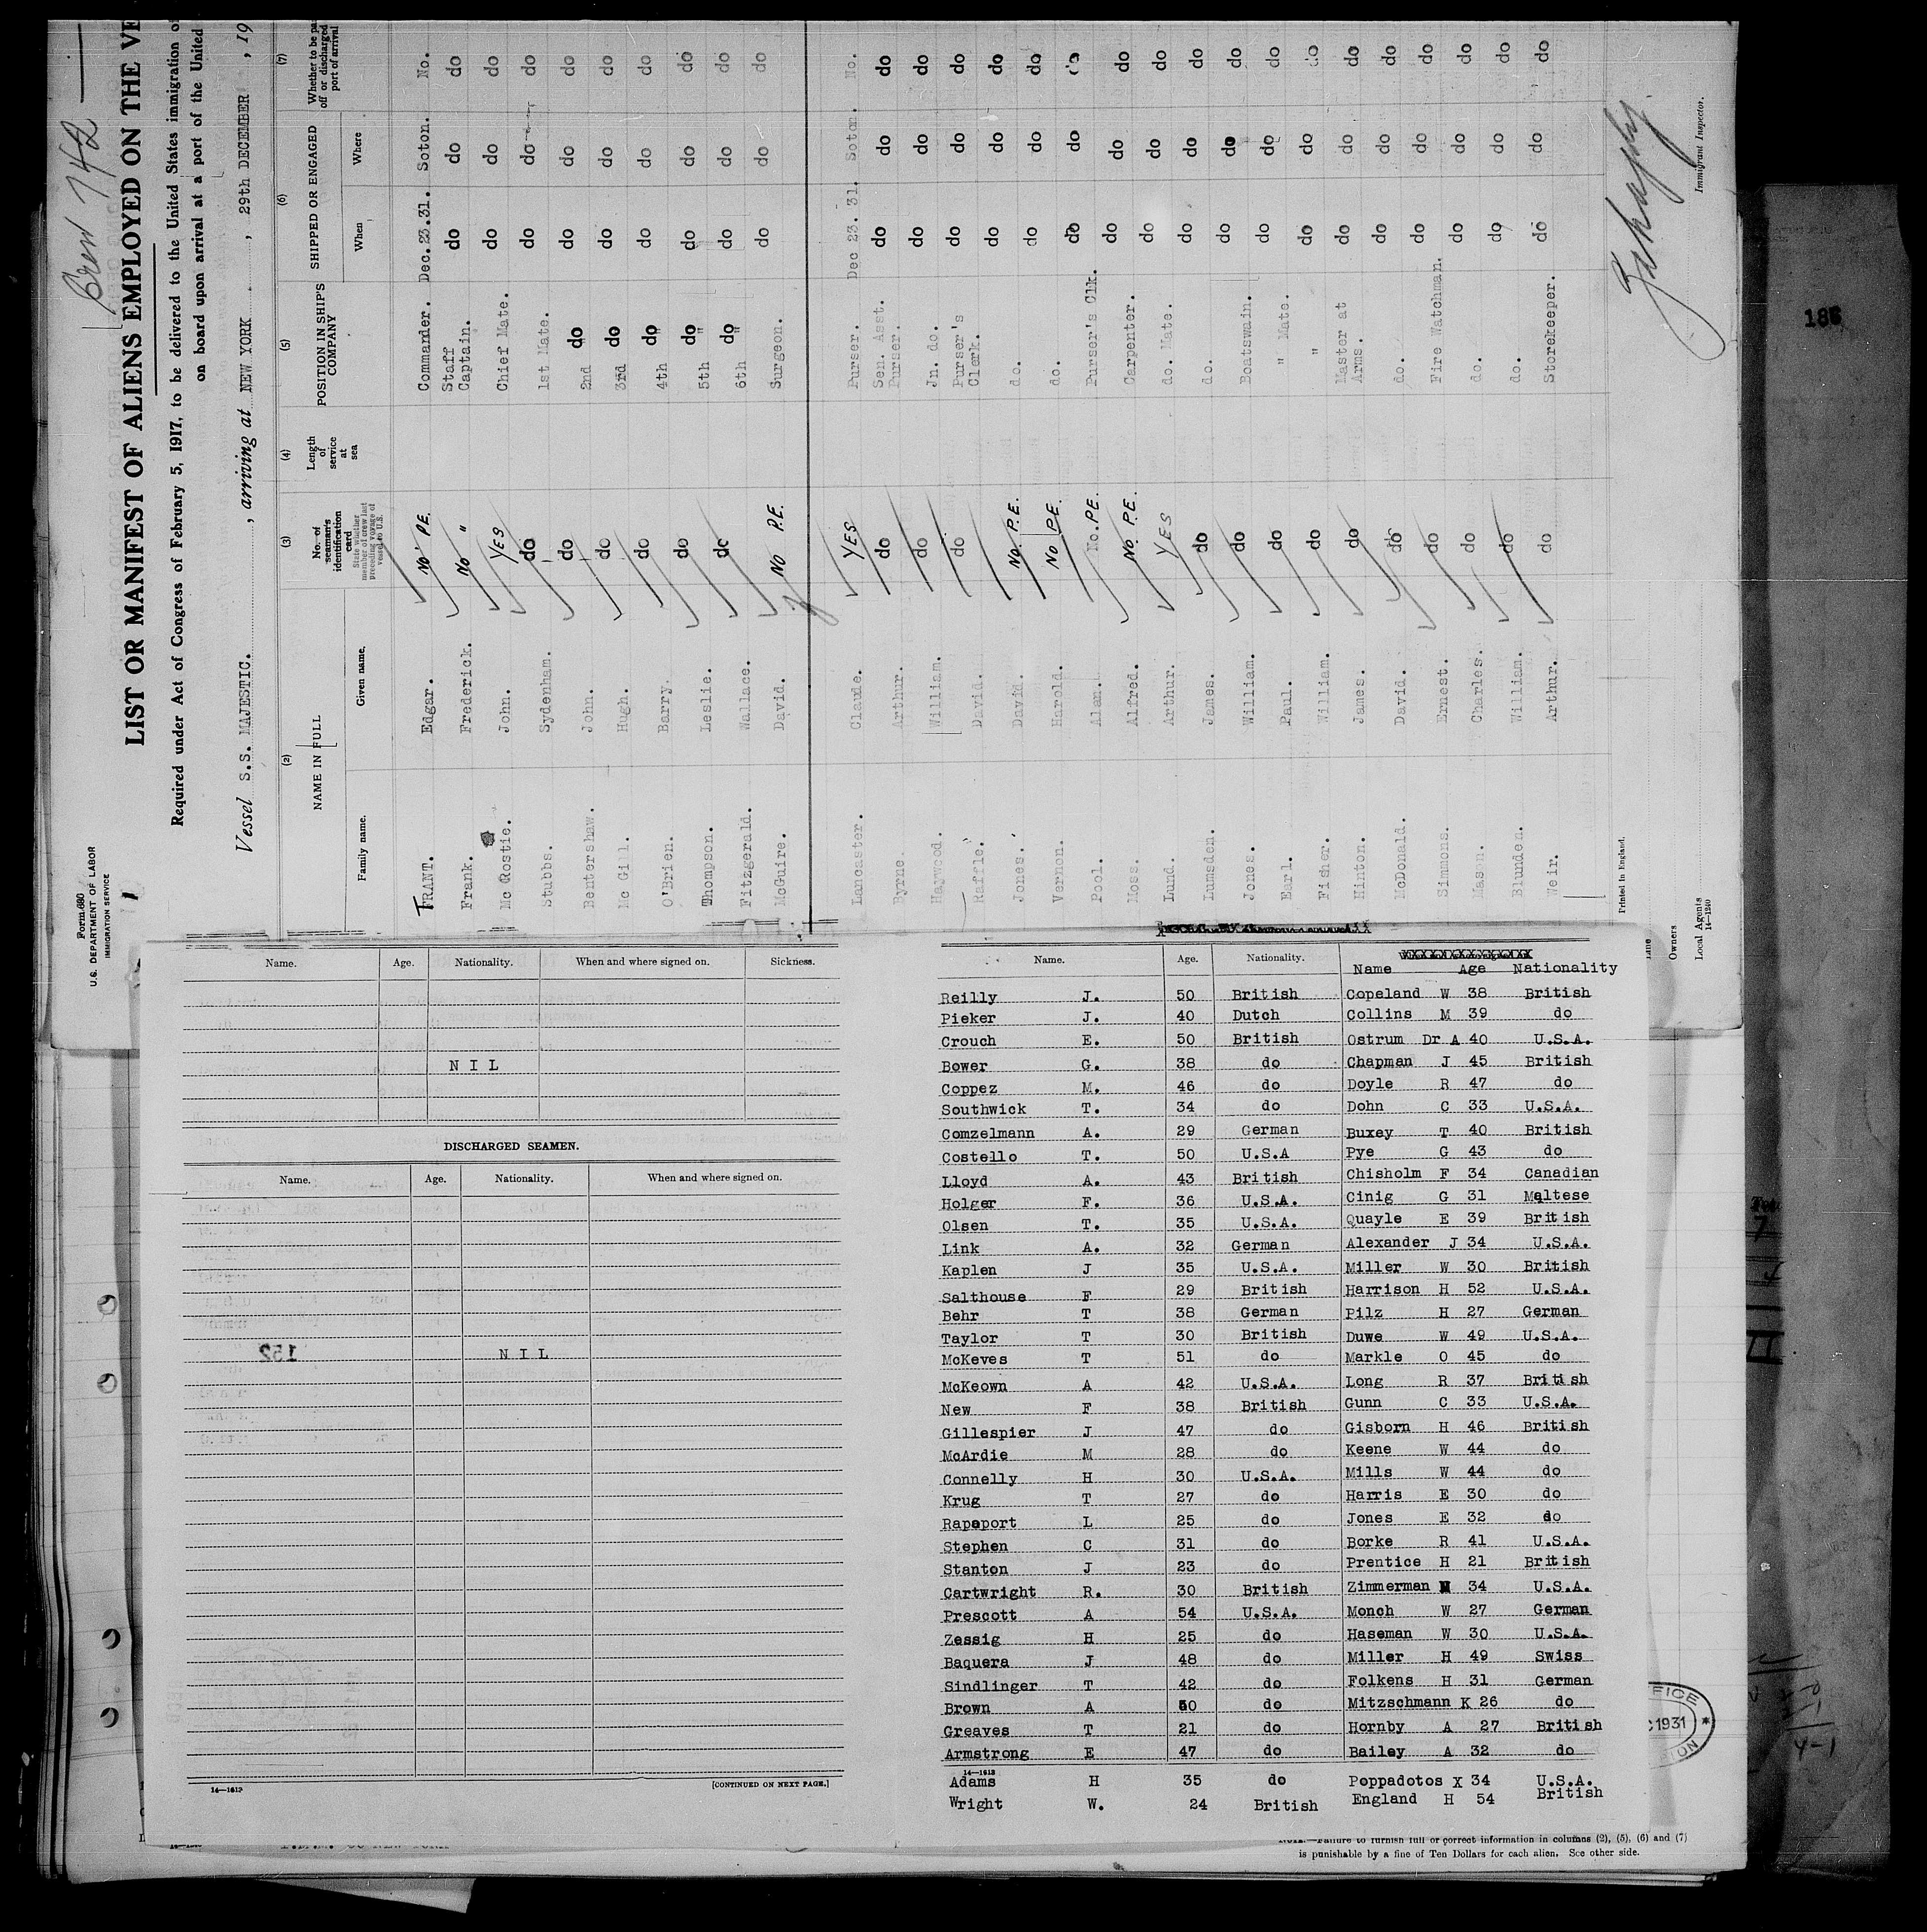 Crew 742
Form 680
U.S. DEPARTMENT OF LABOR
IMMIGRATION SERVICE
LIST OR MANIFEST OF ALIENS EMPLOYED ON THE VE
Required under Act of Congress of February 5, 1917, to be delivered to the United States immigration o
on board upon arrival at a port of the United
Vessel S.S. MAJESTIC. , arriving at NEW YORK . , 29th DECEMBER , 19
(2) (3) (4) (5) (6) (7)
NAME IN FULL
Family name. Given name.
No. of seaman's identification card
State whether member of crew last preceding voyage of vessel to U.S.
Length of service at sea
POSITION IN SHIP'S COMPANY
SHIPPED OR ENGAGED
When Where
Whether to be pa
off or discharged
port of arrival
TRANT. Edgar. No P.E. Commander. Dec.23.31. Soton. No.
Frank. Frederick. No " Staff Captain. do do do
Mc Rostie. John. YES Chief Mate. do do do
Stubbs. Sydenham. do 1st Mate. do do do
Bentershaw. John. do 2nd do do do do
Mc Gill. Hugh. do 3rd do do do do
O'Brien. Barry. do 4th do do do do
Thompson. Leslie. do 5th do do do do
Fitzgerald. Wallace. do 6th do do do do
McGuire. David. NO P.E. Surgeon. do do do
Lancaster. Claude. YES Purser. Dec 23. 31. Soton. No.
Byrne. Arthur. do Sen. Asst. Purser. do do do
Haywood. William. do Jn. do. do do do
Raffle. David. do Purser's Clerk. do do do
Jones. David. No. P.E. do. do do do
Vernon. Harold. No P.E. do. do do do
Pool. Alan. No. P.E. Purser's Clk. do do do
Moss. Alfred. No P.E. Carpenter. do do do
Lund. Arthur. YES do. Mate. do do do
Lumsden. James. do do. do do do
Jones. William. do Boatswain. do do do
Earl. Paul. do " Mate. do do do
Fisher. William. do " do do do
Hinton. James. do Master at Arms. do do do
McDonald. David. do do. do do do
Simmons. Ernest. do Fire Watchman. do do do
Mason. Charles. do do. do do do
Blunden. William. do do. do do do
Weir. Arthur. do Storekeeper. do do do
Printed in England.
Owners
Local Agents
14—1240
Immigrant Inspector.
186
Name. Age. Nationality. When and where signed on. Sickness.
N I L
DISCHARGED SEAMEN.
Name. Age. Nationality. When and where signed on.
152
N I L
14—1613
[CONTINUED ON NEXT PAGE.]
Name. Age. Nationality. Name Age Nationality
Reilly J. 50 British Copeland W 38 British
Pieker J. 40 Dutch Collins M 39 do
Crouch E. 50 British Ostrum Dr A 40 U.S.A.
Bower G. 38 do Chapman J 45 British
Coppez M. 46 do Doyle R 47 do
Southwick T. 34 do Dohn C 33 U.S.A.
Comzelmann A. 29 German Buxey T 40 British
Costello T. 50 U.S.A Pye G 43 do
Lloyd A. 43 British Chisholm F 34 Canadian
Holger F. 36 U.S.A. Cinig G 31 Maltese
Olsen T. 35 U.S.A. Quayle E 39 British
Link A. 32 German Alexander J 34 U.S.A.
Kaplen J 35 U.S.A. Miller W 30 British
Salthouse F 29 British Harrison H 52 U.S.A.
Behr T 38 German Pilz H 27 German
Taylor T 30 British Duwe W 49 U.S.A.
McKeves T 51 do Markle O 45 do
McKeown A 42 U.S.A. Long R 37 British
New F 38 British Gunn C 33 U.S.A.
Gillespier J 47 do Gisborn H 46 British
McArdie M 28 do Keene W 44 do
Connelly H 30 U.S.A. Mills W 44 do
Krug T 27 do Harris E 30 do
Rapaport L 25 do Jones E 32 do
Stephen C 31 do Borke R 41 U.S.A.
Stanton J 23 do Prentice H 21 British
Cartwright R. 30 British Zimmerman M 34 U.S.A.
Prescott A 54 U.S.A. Monch W 27 German
Zessig H 25 do Haseman W 30 U.S.A.
Baquera J 48 do Miller H 49 Swiss
Sindlinger T 42 do Folkens H 31 German
Brown A 50 do Mitzschmann K 26 do
Greaves T 21 do Hornby A 27 British
Armstrong E 47 do Bailey A 32 do
14—1613
Adams H 35 do Poppadotos X 34 U.S.A.
Wright W. 24 British England H 54 British
1931
NOTE.—Failure to furnish full or correct information in columns (2), (5), (6) and (7)
is punishable by a fine of Ten Dollars for each alien. See other side.